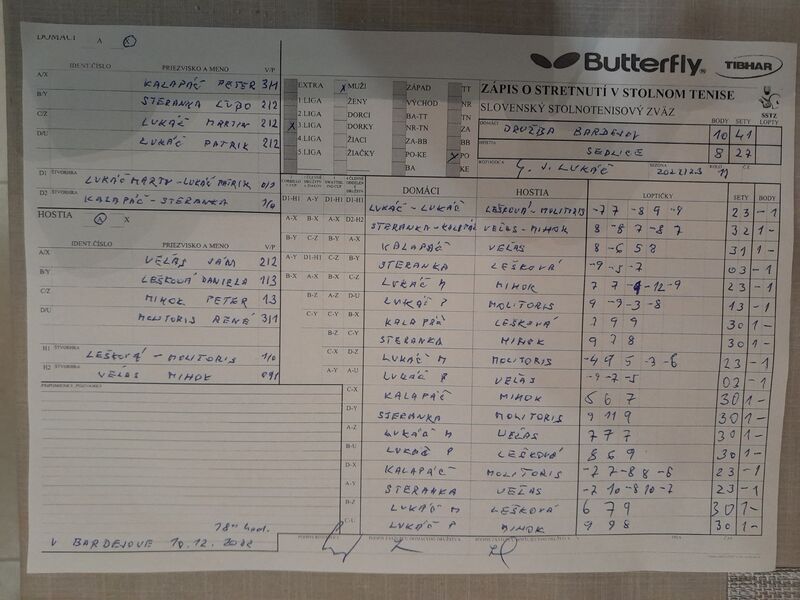 DOMÁCI A X
IDENT.ČÍSLO PRIEZVISKO A MENO V/P
A/X KALAPÁČ PETER 3/1
B/Y STERANKA ĽUBO 2/2
C/Z LUKÁČ MARTIN 2/2
D/U LUKÁČ PATRIK 2/2
D1 ŠTVORHRA LUKÁČ MARTIN - LUKÁČ PATRIK 0/1
D2 ŠTVORHRA KALAPÁČ - STERANKA 1/0
HOSTIA A X
IDENT.ČÍSLO PRIEZVISKO A MENO V/P
A/X VELÁS JÁN 2/2
B/Y LEŠKOVÁ DANIELA 1/3
C/Z MIHOK PETER 1/3
D/U MOLITORIS RENÉ 3/1
H1 ŠTVORHRA LEŠKOVÁ - MOLITORIS 1/0
H2 ŠTVORHRA VELÁS MIHOK 0/1
PRIPOMIENKY
18 00 hod.
V BARDEJOVE 10.12.2022
Butterfly TIBHAR
ZÁPIS O STRETNUTÍ V STOLNOM TENISE
SLOVENSKÝ STOLNOTENISOVÝ ZVÄZ
SSTZ
BODY SETY LOPTY
DOMÁCI DRUŽBA BARDEJOV 10 41
HOSTIA SEDLICE 8 27
ROZHODCA J. LUKÁČ SEZÓNA 2022/23 KOLO 11
EXTRA X MUŽI ZÁPAD TT
1.LIGA ŽENY VÝCHOD NR
2.LIGA DORCI BA-TT TN
X 3.LIGA DORKY NR-TN ZA
4.LIGA ŽIACI ZA-BB BB
5.LIGA ŽIAČKY PO-KE X PO
BA KE
DOMÁCI HOSTIA LOPTIČKY SETY BODY
LUKÁČ - LUKÁČ LEŠKOVÁ - MOLITORIS -7 7 -8 9 -9 2 3 - 1
STERANKA - KALAPÁČ VELÁS - MIHOK 8 -8 7 -8 7 3 2 1 -
KALAPÁČ VELÁS 8 -6 5 8 3 1 1 -
STERANKA LEŠKOVÁ -9 -5 -7 0 3 - 1
LUKÁČ M MIHOK 7 7 -9 -12 -9 2 3 - 1
LUKÁČ P MOLITORIS 9 -9 -3 -8 1 3 - 1
KALAPÁČ LEŠKOVÁ 7 9 9 3 0 1 -
STERANKA MIHOK 9 7 8 3 0 1 -
LUKÁČ M MOLITORIS -4 9 5 -3 -6 2 3 - 1
LUKÁČ P VELÁS -9 -7 -5 0 3 - 1
KALAPÁČ MIHOK 5 6 7 3 0 1 -
STERANKA MOLITORIS 9 11 9 3 0 1 -
LUKÁČ M VELÁS 7 7 7 3 0 1 -
LUKÁČ P LEŠKOVÁ 8 6 9 3 0 1 -
KALAPÁČ MOLITORIS -7 7 -8 8 -6 2 3 - 1
STERANKA VELÁS -7 10 -8 10 -7 2 3 - 1
LUKÁČ M LEŠKOVÁ 6 7 9 3 0 1 -
LUKÁČ P MIHOK 9 9 8 3 0 1 -